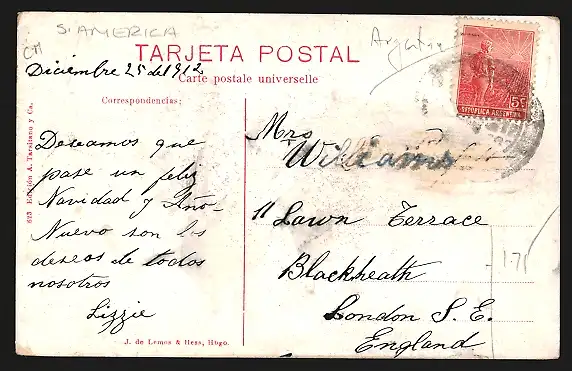 S. AMERICA
CM
Argentina
TARJETA POSTAL
Diciembre 25 del 912
Carte postale universelle
Correspondencias:
Deseamos que
pase un feliz
Navidad y Año-
Nuevo son los
deseos de todos
nosotros
Lizzie
Mrs
Williams
11 Lawn Terrace
Blackheath
London S. E.
England.
1.75
5c
REPUBLICA ARGENTINA
623 Edición A. Tarsitano y Ca.
J. de Lemos & Hess, Hbgo.